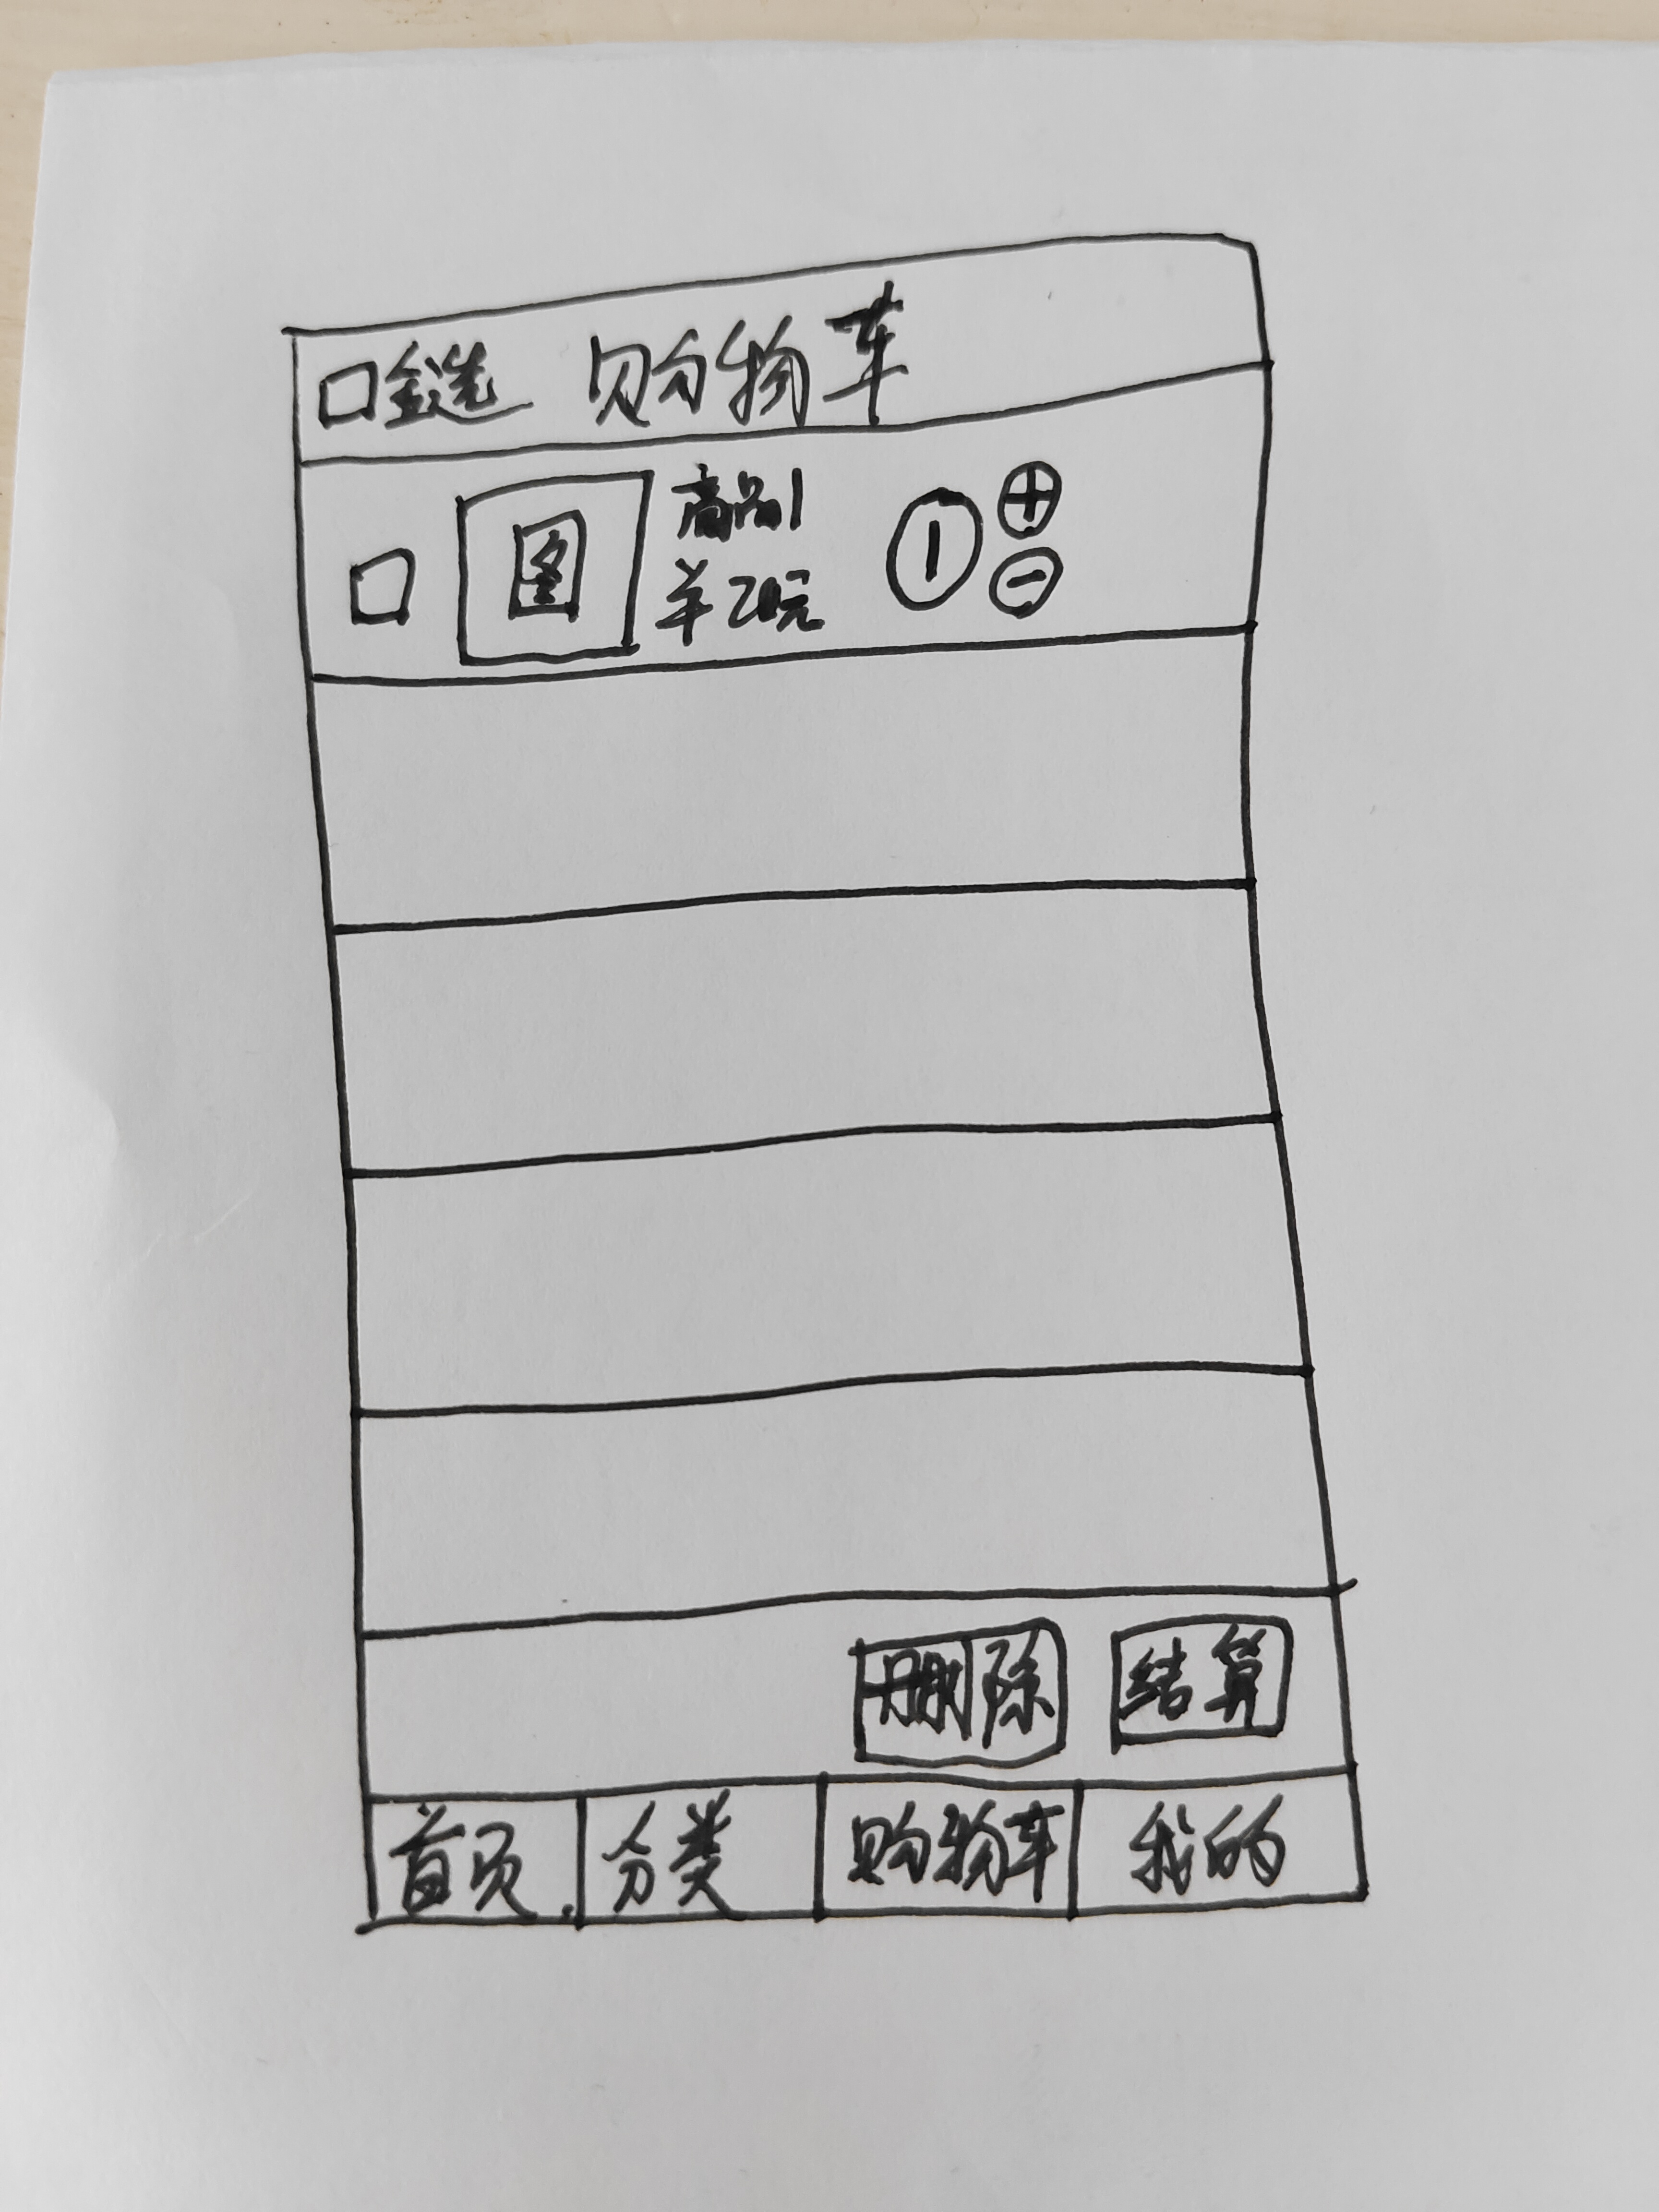 全选 购物车
图 商品1 1 + -
￥20元
删除 结算
首页 分类 购物车 我的